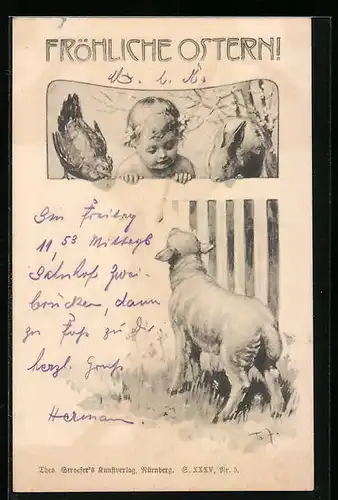 FRÖHLICHE OSTERN!
Am Freitag
11,53 Mittags
Bahnhof Zwei-
brücken, dann
zu Fuß zu Dir.
herzl. Gruß
Herman
Theo. Stroefer's Kunstverlag, Nürnberg. S. XXXV, Nr. 5.